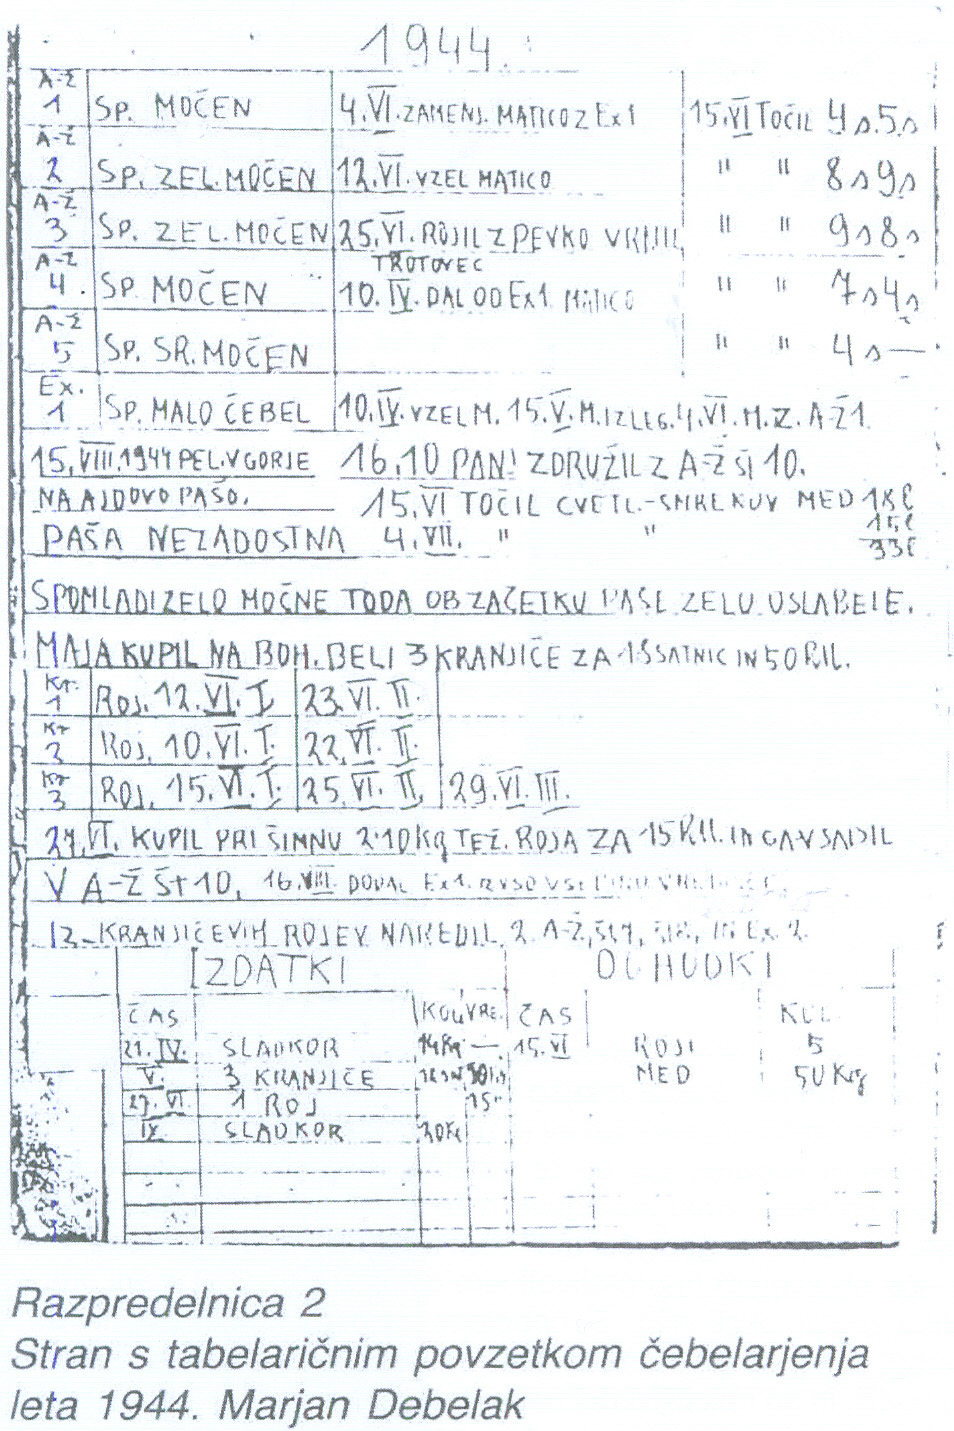 1944.
A-Ž 1 SP. MOČEN 4.VI. ZAMENJ. MATICO Z Ex1 15.VI TOČIL 4 s. 5 s
A-Ž 2 SP. ZEL. MOČEN 12.VI. VZEL MATICO " " 8 s 9 s
A-Ž 3 SP. ZEL. MOČEN 25.VI. ROJIL Z PEVKO " " 9 s 8 s
TROTOVEC
A-Ž 4. SP. MOČEN 10.IV. DAL OD Ex1. MATICO " " 7 s 4 s
A-Ž 5 SP. SR. MOČEN " " 4 s —
Ex. 1 SP. MALO ČEBEL 10.IV. VZEL M. 15.V. M. IZLEG. 4.VI. M. Z. A-Ž1.
15.VIII.1944 PEL. V GORJE 16.10 ZDRUŽIL Z A-Ž ŠT 10.
NA AJDOVO PAŠO. 15.VI TOČIL CVETL.-SMREKOV MED 18 l
15 l
PAŠA NEZADOSTNA 4.VII. " " 33 l
SPOMLADI ZELO MOČNE TODA OB ZAČETKU PAŠE ZELO OSLABELE.
MAJA KUPIL NA BOH. BELI 3 KRANJIČE ZA SATNIC IN 50 RM.
Kr. 1 Roj. 12.VI. I. 23.VI. II.
Kr 2 Roj. 10.VI. I. 22.VI. II.
Kr 3 Roj. 15.VI. I. 25.VI. II. 29.VI. III.
27.VI. KUPIL PRI ŠIMNU 2·10 Kg TEŽ. ROJA ZA 15 RM. IN GA VSADIL
V A-Ž ŠT 10, 16.VIII. DODAL Ex1.
IZ KRANJIČEVIH ROJEV NAREDIL 2 A-Ž, IN Ex 2.
IZDATKI DOHODKI
ČAS KOL VRE. ČAS KOL
21.IV. SLADKOR 14 Kg — 15.VI ROJI 5
V. 3 KRANJIČE MED 50 Kg
27.VI 1 ROJ 15"
IX SLADKOR 20 Kg
Razpredelnica 2
Stran s tabelaričnim povzetkom čebelarjenja
leta 1944. Marjan Debelak